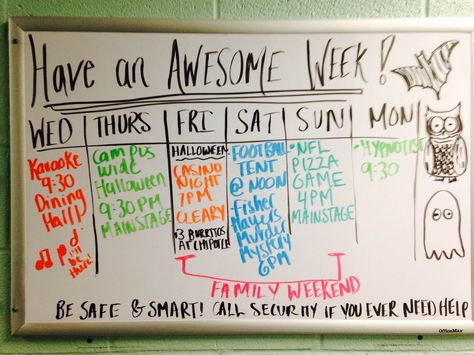 Have an AWESOME WEEK!
WED THURS FRI SAT SUN MON
Karaoke
9:30
Dining
Hall
I'll
be
there!
Campus
wide
Halloween
9:30PM
MAINSTAGE
HALLOWEEN
CASINO
NIGHT
7PM
CLEARY
$3 BURRITOS
AT CHIPOTLE!
FOOTBALL
TENT
@ NOON
Fisher
Players
Murder
Mystery
6PM
•NFL
PIZZA
GAME
4PM
MAINSTAGE
•HYPNOTIST
9:30
FAMILY WEEKEND
BE SAFE & SMART! CALL SECURITY IF YOU EVER NEED HELP
OfficeMax